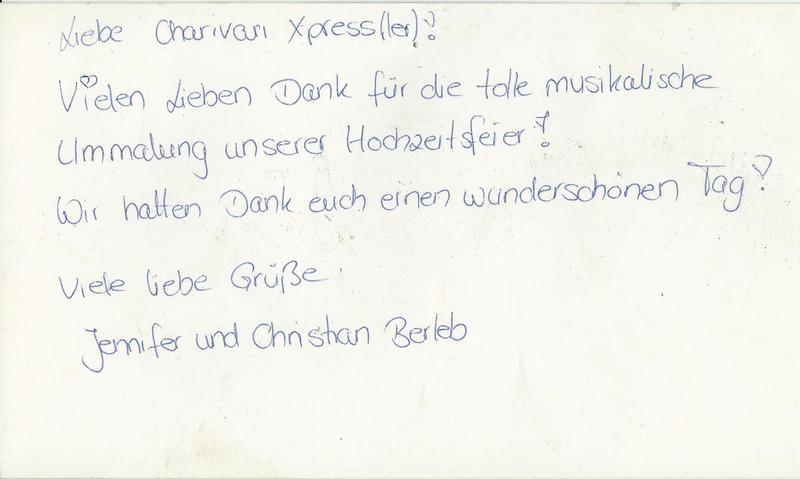 Liebe Charivari Xpress(ler)!
Vielen lieben Dank für die tolle musikalische
Ummalung unserer Hochzeitsfeier!
Wir hatten Dank euch einen wunderschönen Tag!
Viele liebe Grüße
Jennifer und Christian Berleb